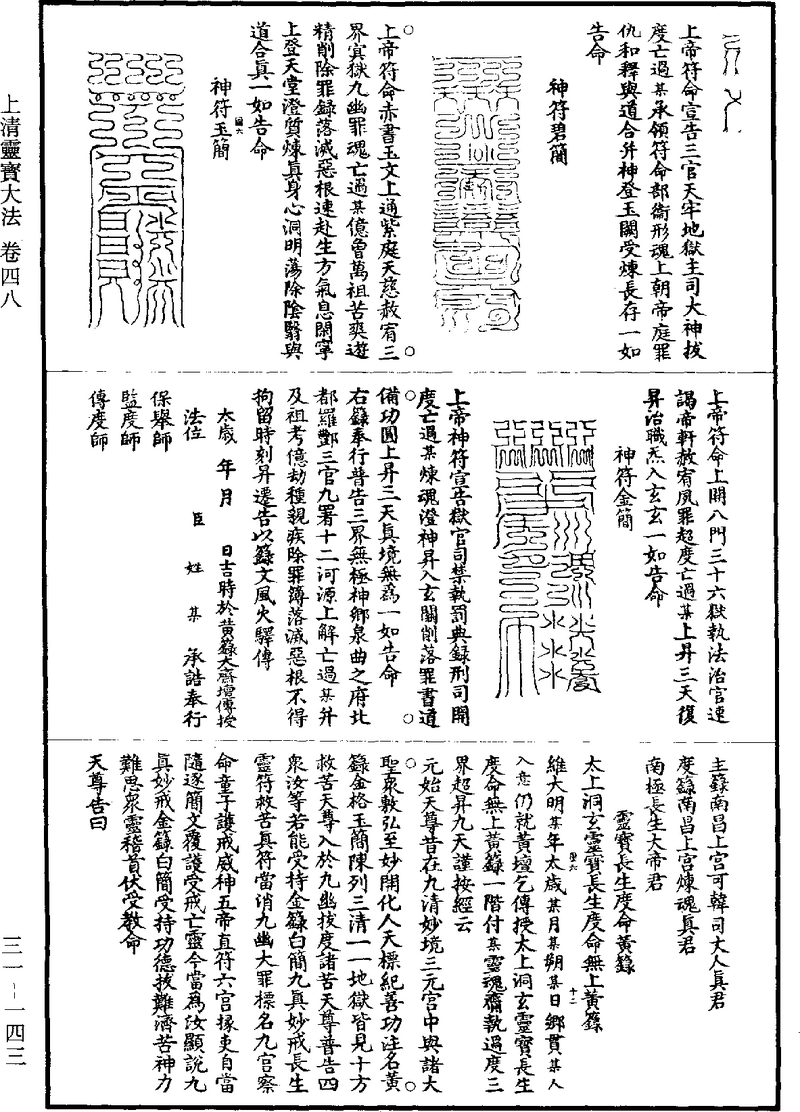 上帝符命宣告三官天牢地獄主司大神拔
度亡過某承領符命部衛形魂上朝帝庭罪
仇和釋與道合并神登玉闕受煉長存一如
告命
神符碧簡
上帝符命赤書玉文上通紫庭天慈赦宥三
界冥獄九幽罪魂亡過某億曾萬祖苦爽遊
精削除罪錄落滅惡根速赴生方氣息閑寧
上登天堂澄質煉真身心洞明蕩除陰翳與
道合真一如告命
神符玉簡
上帝符命上開八門三十六獄執法治官速
謁帝軒赦宥夙罪超度亡過某上昇三天復
昇治職炁入玄玄一如告命
神符金簡
上帝神符宣告獄官司禁執罰典錄刑司開
度亡過某煉魂澄神昇入玄關削落罪書道
備功圓上昇三天真境無為一如告命
右籙奉行普告三界無極神鄉泉曲之府北
都羅酆三官九署十二河源上解亡過某并
及祖考億劫種親疾除罪簿落滅惡根不得
拘留時刻昇遷告以籙文風火驛傳
太歲 年 月 日吉時於黃籙大齋壇傳授
法位 臣 姓 某 承誥奉行
保舉師
監度師
傳度師
主籙南昌上宮可韓司丈人真君
度籙南昌上宮煉魂真君
南極長生大帝君
靈寶長生度命黃籙
太上洞玄靈寶長生度命無上黃籙
維大明某年太歲某月某朔某日鄉貫某人
入意仍就黃壇乞傳授太上洞玄靈寶長生
度命無上黃籙一階付某靈魂齎執過度三
界超昇九天謹按經云
元始天尊昔在九清妙境三元宮中與諸大
聖眾敷弘至妙開化人天標紀善功注名黃
錄金格玉簡陳列三清一一地獄皆見十方
救苦天尊入於九幽拔度諸苦天尊普告四
眾汝等若能受持金籙白簡九真妙戒長生
靈符救苦真符當消九幽大罪標名九宮察
命童子護戒威神五帝直符六宮掾吏自當
隨逐簡文覆護受戒亡靈今當為汝顯說九
真妙戒金籙白簡受持功德拔難濟苦神力
難思眾靈稽首伏受教命
天尊告曰
上清靈寶大法 卷四八
三一－一四三